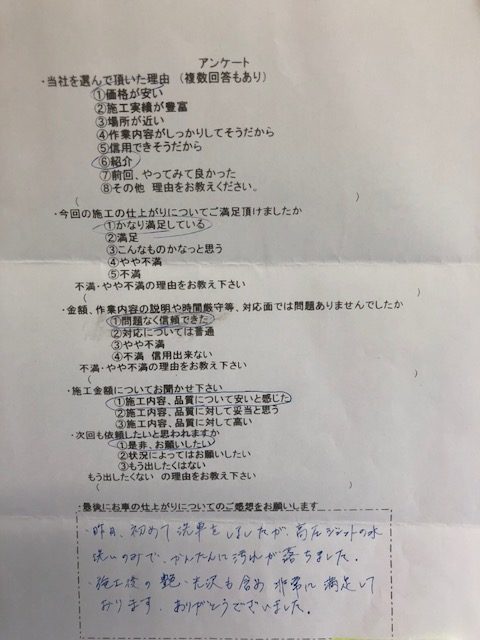 アンケート
・当社を選んで頂いた理由 （複数回答もあり）
①価格が安い
②施工実績が豊富
③場所が近い
④作業内容がしっかりしてそうだから
⑤信用できそうだから
⑥紹介
⑦前回、やってみて良かった
⑧その他 理由をお教えください。
( )
・今回の施工の仕上がりについてご満足頂けましたか
①かなり満足している
②満足
③こんなものかなっと思う
④やや不満
⑤不満
不満・やや不満の理由をお教え下さい
( )
・金額、作業内容の説明や時間厳守等、対応面では問題ありませんでしたか
①問題なく信頼できた
②対応については普通
③やや不満
④不満 信用出来ない
不満・やや不満の理由をお教え下さい
( )
・施工金額についてお聞かせ下さい
①施工内容、品質について安いと感じた
②施工内容、品質に対して妥当と思う
③施工内容、品質に対して高い
・次回も依頼したいと思われますか
①是非、お願いしたい
②状況によってはお願いしたい
③もう出したくはない
もう出したくない の理由をお教え下さい
( )
・最後にお車の仕上がりについてのご感想をお願いします
・昨日、初めて洗車をしましたが、高圧ジェットの水
洗いのみで、かんたんに汚れが落ちました。
・施工後の艶・光沢も含め非常に満足して
おります。ありがとうございました。